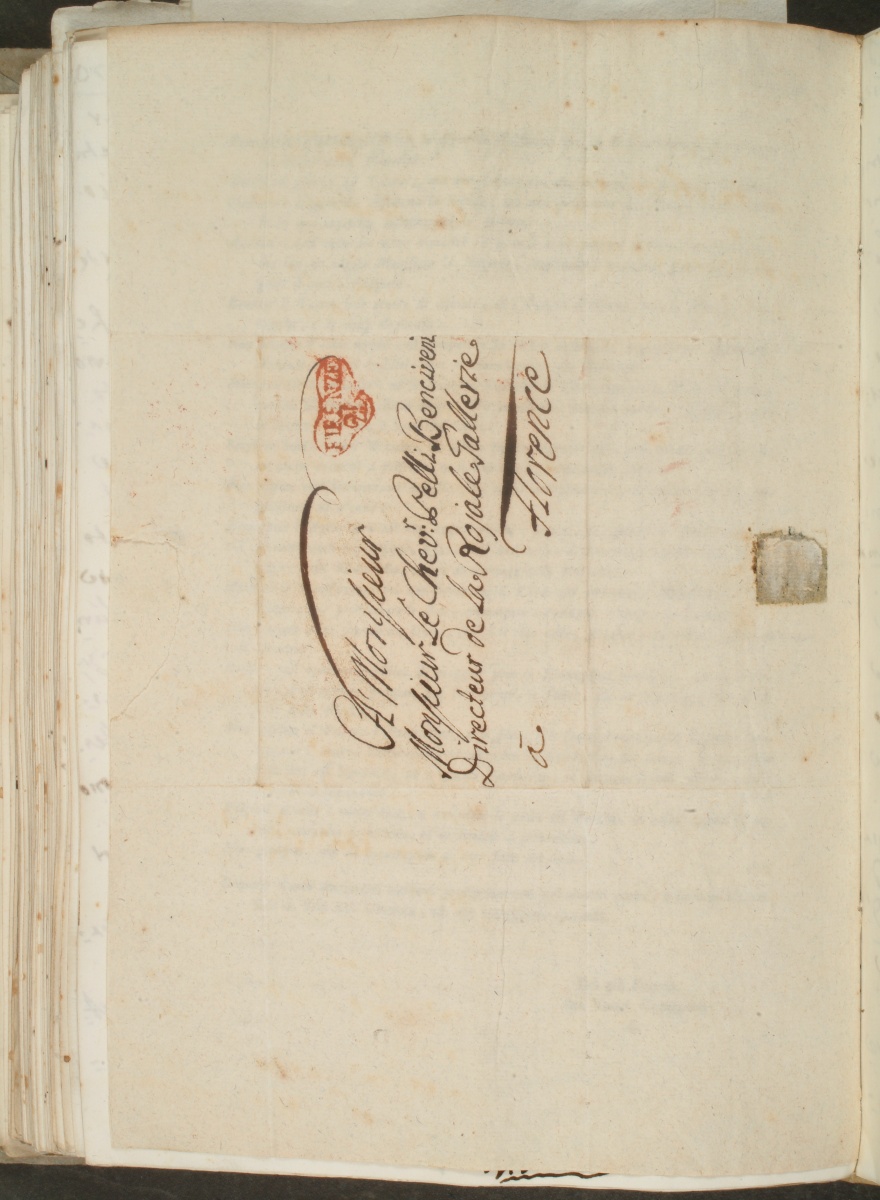 FIRENZE
A Monsieur
Monsieur Le Chev:r Pelli Benciveni
Directeur de La Rojale Gallerie
à Florence